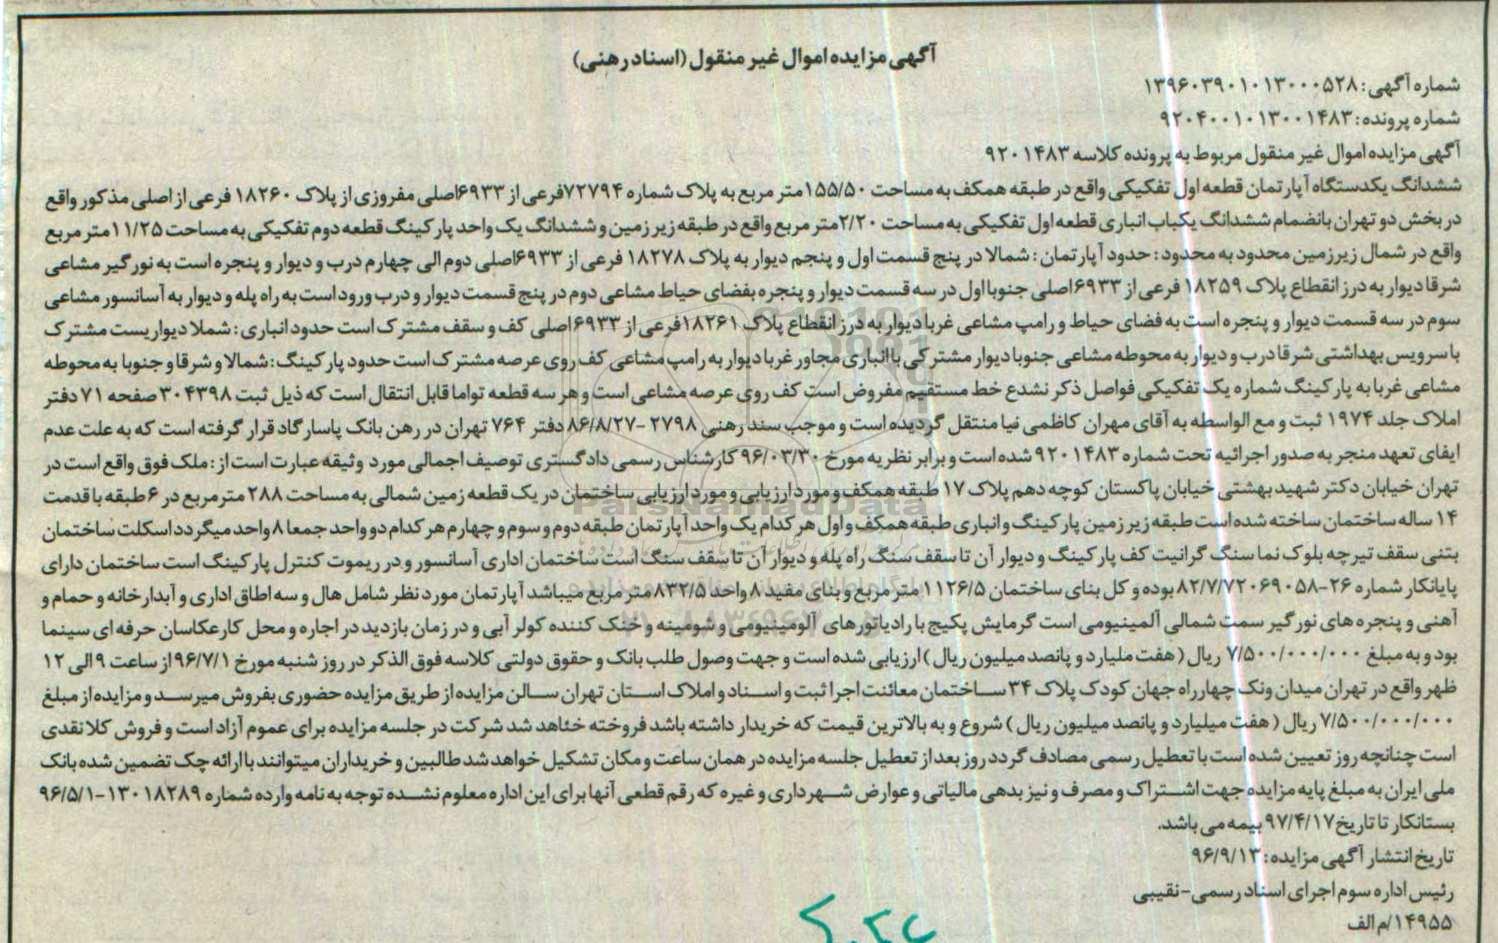 آگهی مزایده اموال غیر منقول (اسناد رهنی)
شماره آگهی: ۱۳۹۶۰۳۹۰۱۰۱۳۰۰۰۵۲۸
شماره پرونده: ۹۲۰۴۰۰۱۰۱۳۰۰۱۴۸۳
آگهی مزایده اموال غیر منقول مربوط به پرونده کلاسه ۹۲۰۱۴۸۳
ششدانگ یکدستگاه آپارتمان قطعه اول تفکیکی واقع در طبقه همکف به مساحت ۱۵۵/۵۰ متر مربع به پلاک شماره ۷۲۷۹۴فرعی از ۶۹۳۳اصلی مفروزی از پلاک ۱۸۲۶۰ فرعی از اصلی مذکور واقع
در بخش دو تهران بانضمام ششدانگ یکباب انباری قطعه اول تفکیکی به مساحت ۲/۲۰متر مربع واقع در طبقه زیر زمین و ششدانگ یک واحد پارکینگ قطعه دوم تفکیکی به مساحت ۱۱/۲۵متر مربع
واقع در شمال زیرزمین محدود به محدود: حدود آپارتمان: شمالا در پنج قسمت اول و پنجم دیوار به پلاک ۱۸۲۷۸ فرعی از ۶۹۳۳اصلی دوم الی چهارم درب و دیوار و پنجره است به نورگیر مشاعی
شرقا دیوار به درز انقطاع پلاک ۱۸۲۵۹ فرعی از ۶۹۳۳اصلی جنوبا اول در سه قسمت دیوار و پنجره بفضای حیاط مشاعی دوم در پنج قسمت دیوار و درب ورود است به راه پله و دیوار به آسانسور مشاعی
سوم در سه قسمت دیوار و پنجره است به فضای حیاط و رامپ مشاعی غربا دیوار به درز انقطاع پلاک ۱۸۲۶۱فرعی از ۶۹۳۳اصلی کف و سقف مشترک است حدود انباری: شملا دیواریست مشترک
با سرویس بهداشتی شرقا درب و دیوار به محوطه مشاعی جنوبا دیوار مشترکی با انباری مجاور غربا دیوار به رامپ مشاعی کف روی عرصه مشترک است حدود پارکینگ: شمالا و شرقا و جنوبا به محوطه
مشاعی غربا به پارکینگ شماره یک تفکیکی فواصل ذکر نشدع خط مستقیم مفروض است کف روی عرصه مشاعی است و هر سه قطعه تواما قابل انتقال است که ذیل ثبت ۳۰۴۳۹۸ صفحه ۷۱ دفتر
املاک جلد ۱۹۷۴ ثبت و مع الواسطه به آقای مهران کاظمی نیا منتقل گردیده است و موجب سند رهنی ۲۷۹۸ -۸۶/۸/۲۷ دفتر ۷۶۴ تهران در رهن بانک پاسارگاد قرار گرفته است که به علت عدم
ایفای تعهد منجر به صدور اجرائیه تحت شماره ۹۲۰۱۴۸۳ شده است و برابر نظریه مورخ ۹۶/۰۳/۳۰ کارشناس رسمی دادگستری توصیف اجمالی مورد وثیقه عبارت است از: ملک فوق واقع است در
تهران خیابان دکتر شهید بهشتی خیابان پاکستان کوچه دهم پلاک ۱۷ طبقه همکف و مورد ارزیابی و مورد ارزیابی ساختمان در یک قطعه زمین شمالی به مساحت ۲۸۸ مترمربع در ۶ طبقه با قدمت
۱۴ ساله ساختمان ساخته شده است طبقه زیر زمین پارکینگ و انباری طبقه همکف و اول هر کدام یک واحد آپارتمان طبقه دوم و سوم و چهارم هر کدام دو واحد جمعا ۸ واحد میگردد اسکلت ساختمان
بتنی سقف تیرچه بلوک نما سنگ گرانیت کف پارکینگ و دیوار آن تا سقف سنگ راه پله و دیوار آن تا سقف سنگ است ساختمان اداری آسانسور و در ریموت کنترل پارکینگ است ساختمان دارای
پایانکار شماره ۲۶-۸۲/۷/۷۲۰۶۹۰۵۸ بوده و کل بنای ساختمان ۱۱۲۶/۵ متر مربع و بنای مفید ۸ واحد ۸۳۲/۵ متر مربع میباشد آپارتمان مورد نظر شامل هال و سه اطاق اداری و آبدارخانه و حمام و
آهنی و پنجره های نورگیر سمت شمالی آلمینیومی است گرمایش پکیج با رادیاتورهای آلومینیومی و شومینه و خنک کننده کولر آبی و در زمان بازدید در اجاره و محل کار عکاسان حرفه ای سینما
بود و به مبلغ ۷/۵۰۰/۰۰۰/۰۰۰ ریال (هفت ملیارد و پانصد میلیون ریال) ارزیابی شده است و جهت وصول طلب بانک و حقوق دولتی کلاسه فوق الذکر در روز شنبه مورخ ۹۶/۷/۱ از ساعت ۹ الی ۱۲
ظهر واقع در تهران میدان ونک چهارراه جهان کودک پلاک ۳۴ ساختمان معائنت اجرا ثبت و اسناد و املاک استان تهران سالن مزایده از طریق مزایده حضوری بفروش میرسد و مزایده از مبلغ
۷/۵۰۰/۰۰۰/۰۰۰ ریال (هفت میلیارد و پانصد میلیون ریال) شروع و به بالاترین قیمت که خریدار داشته باشد فروخته خئاهد شد شرکت در جلسه مزایده برای عموم آزاد است و فروش کلا نقدی
است چنانچه روز تعیین شده است با تعطیل رسمی مصادف گردد روز بعد از تعطیل جلسه مزایده در همان ساعت و مکان تشکیل خواهد شد طالبین و خریداران میتوانند با ارائه چک تضمین شده بانک
ملی ایران به مبلغ پایه مزایده جهت اشتراک و مصرف و نیز بدهی مالیاتی و عوارض شهرداری و غیره که رقم قطعی آنها برای این اداره معلوم نشده توجه به نامه وارده شماره ۱۳۰۱۸۲۸۹-۹۶/۵/۱
بستانکار تا تاریخ ۹۷/۴/۱۷ بیمه می باشد.
تاریخ انتشار آگهی مزایده: ۹۶/۹/۱۳
رئیس اداره سوم اجرای اسناد رسمی-نقیبی
۱۴۹۵۵/م الف
ParsNamadData